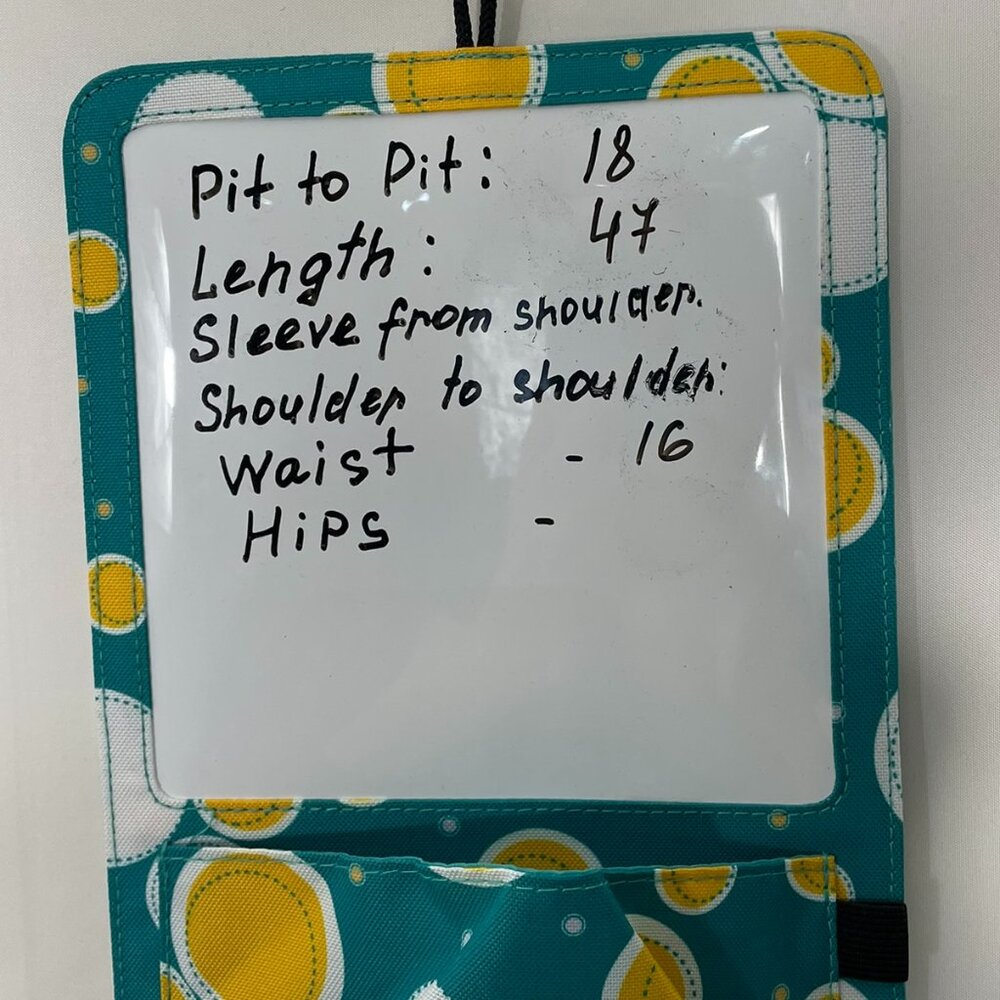 Pit to Pit: 18
Length: 47
Sleeve from shoulder.
Shoulder to shoulder:
Waist - 16
Hips -